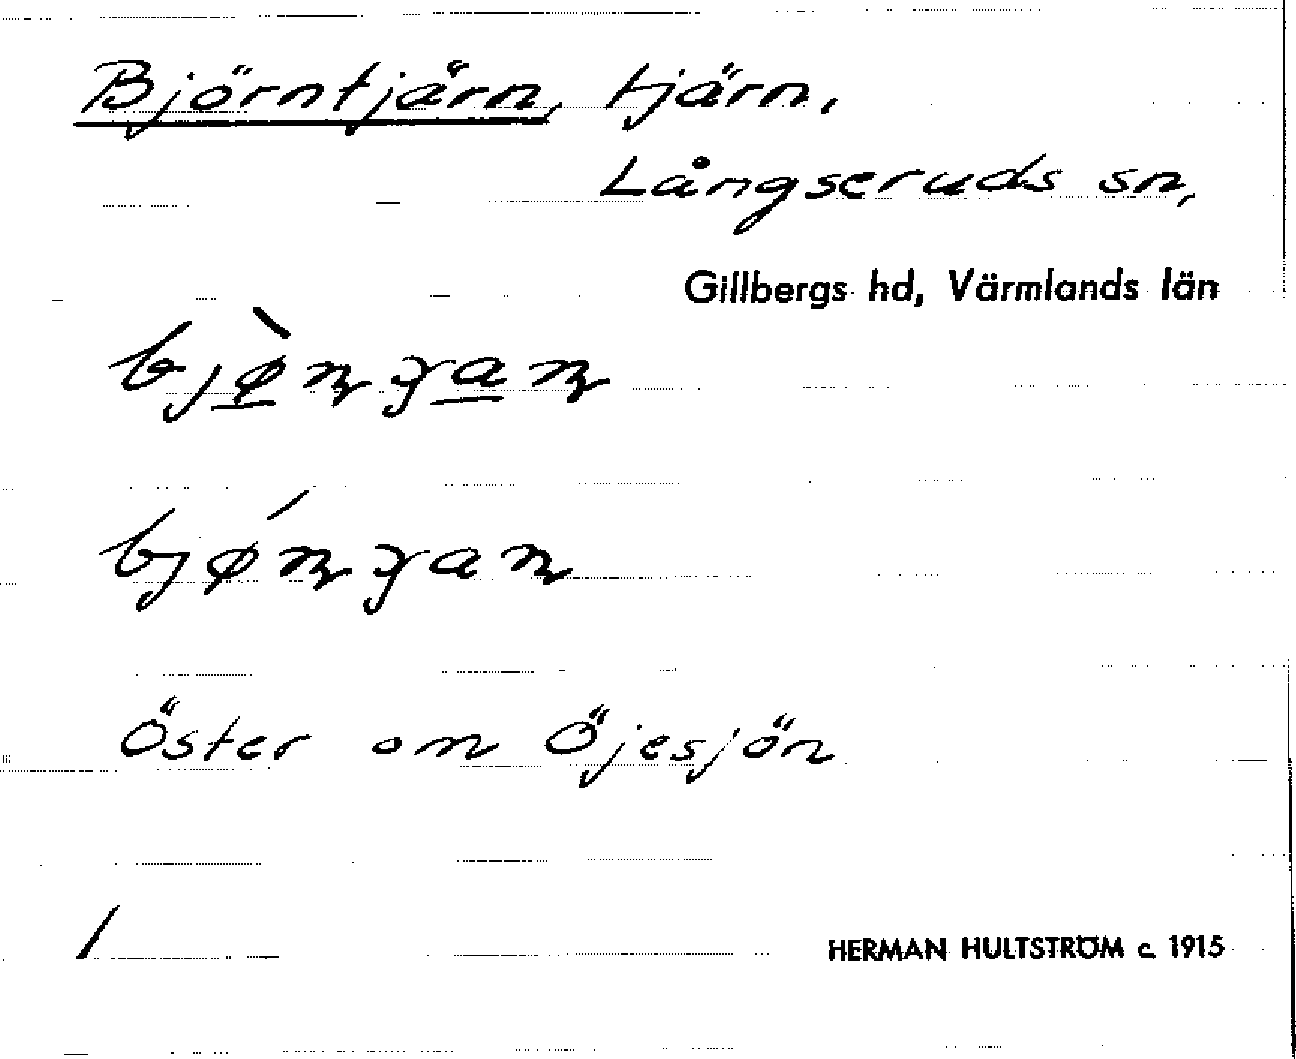 Björntjärn, tjärn,
Långseruds sn,
Gillbergs hd, Värmlands län
Öster om Öjesjön
/
HERMAN HULTSTRÖM c. 1915